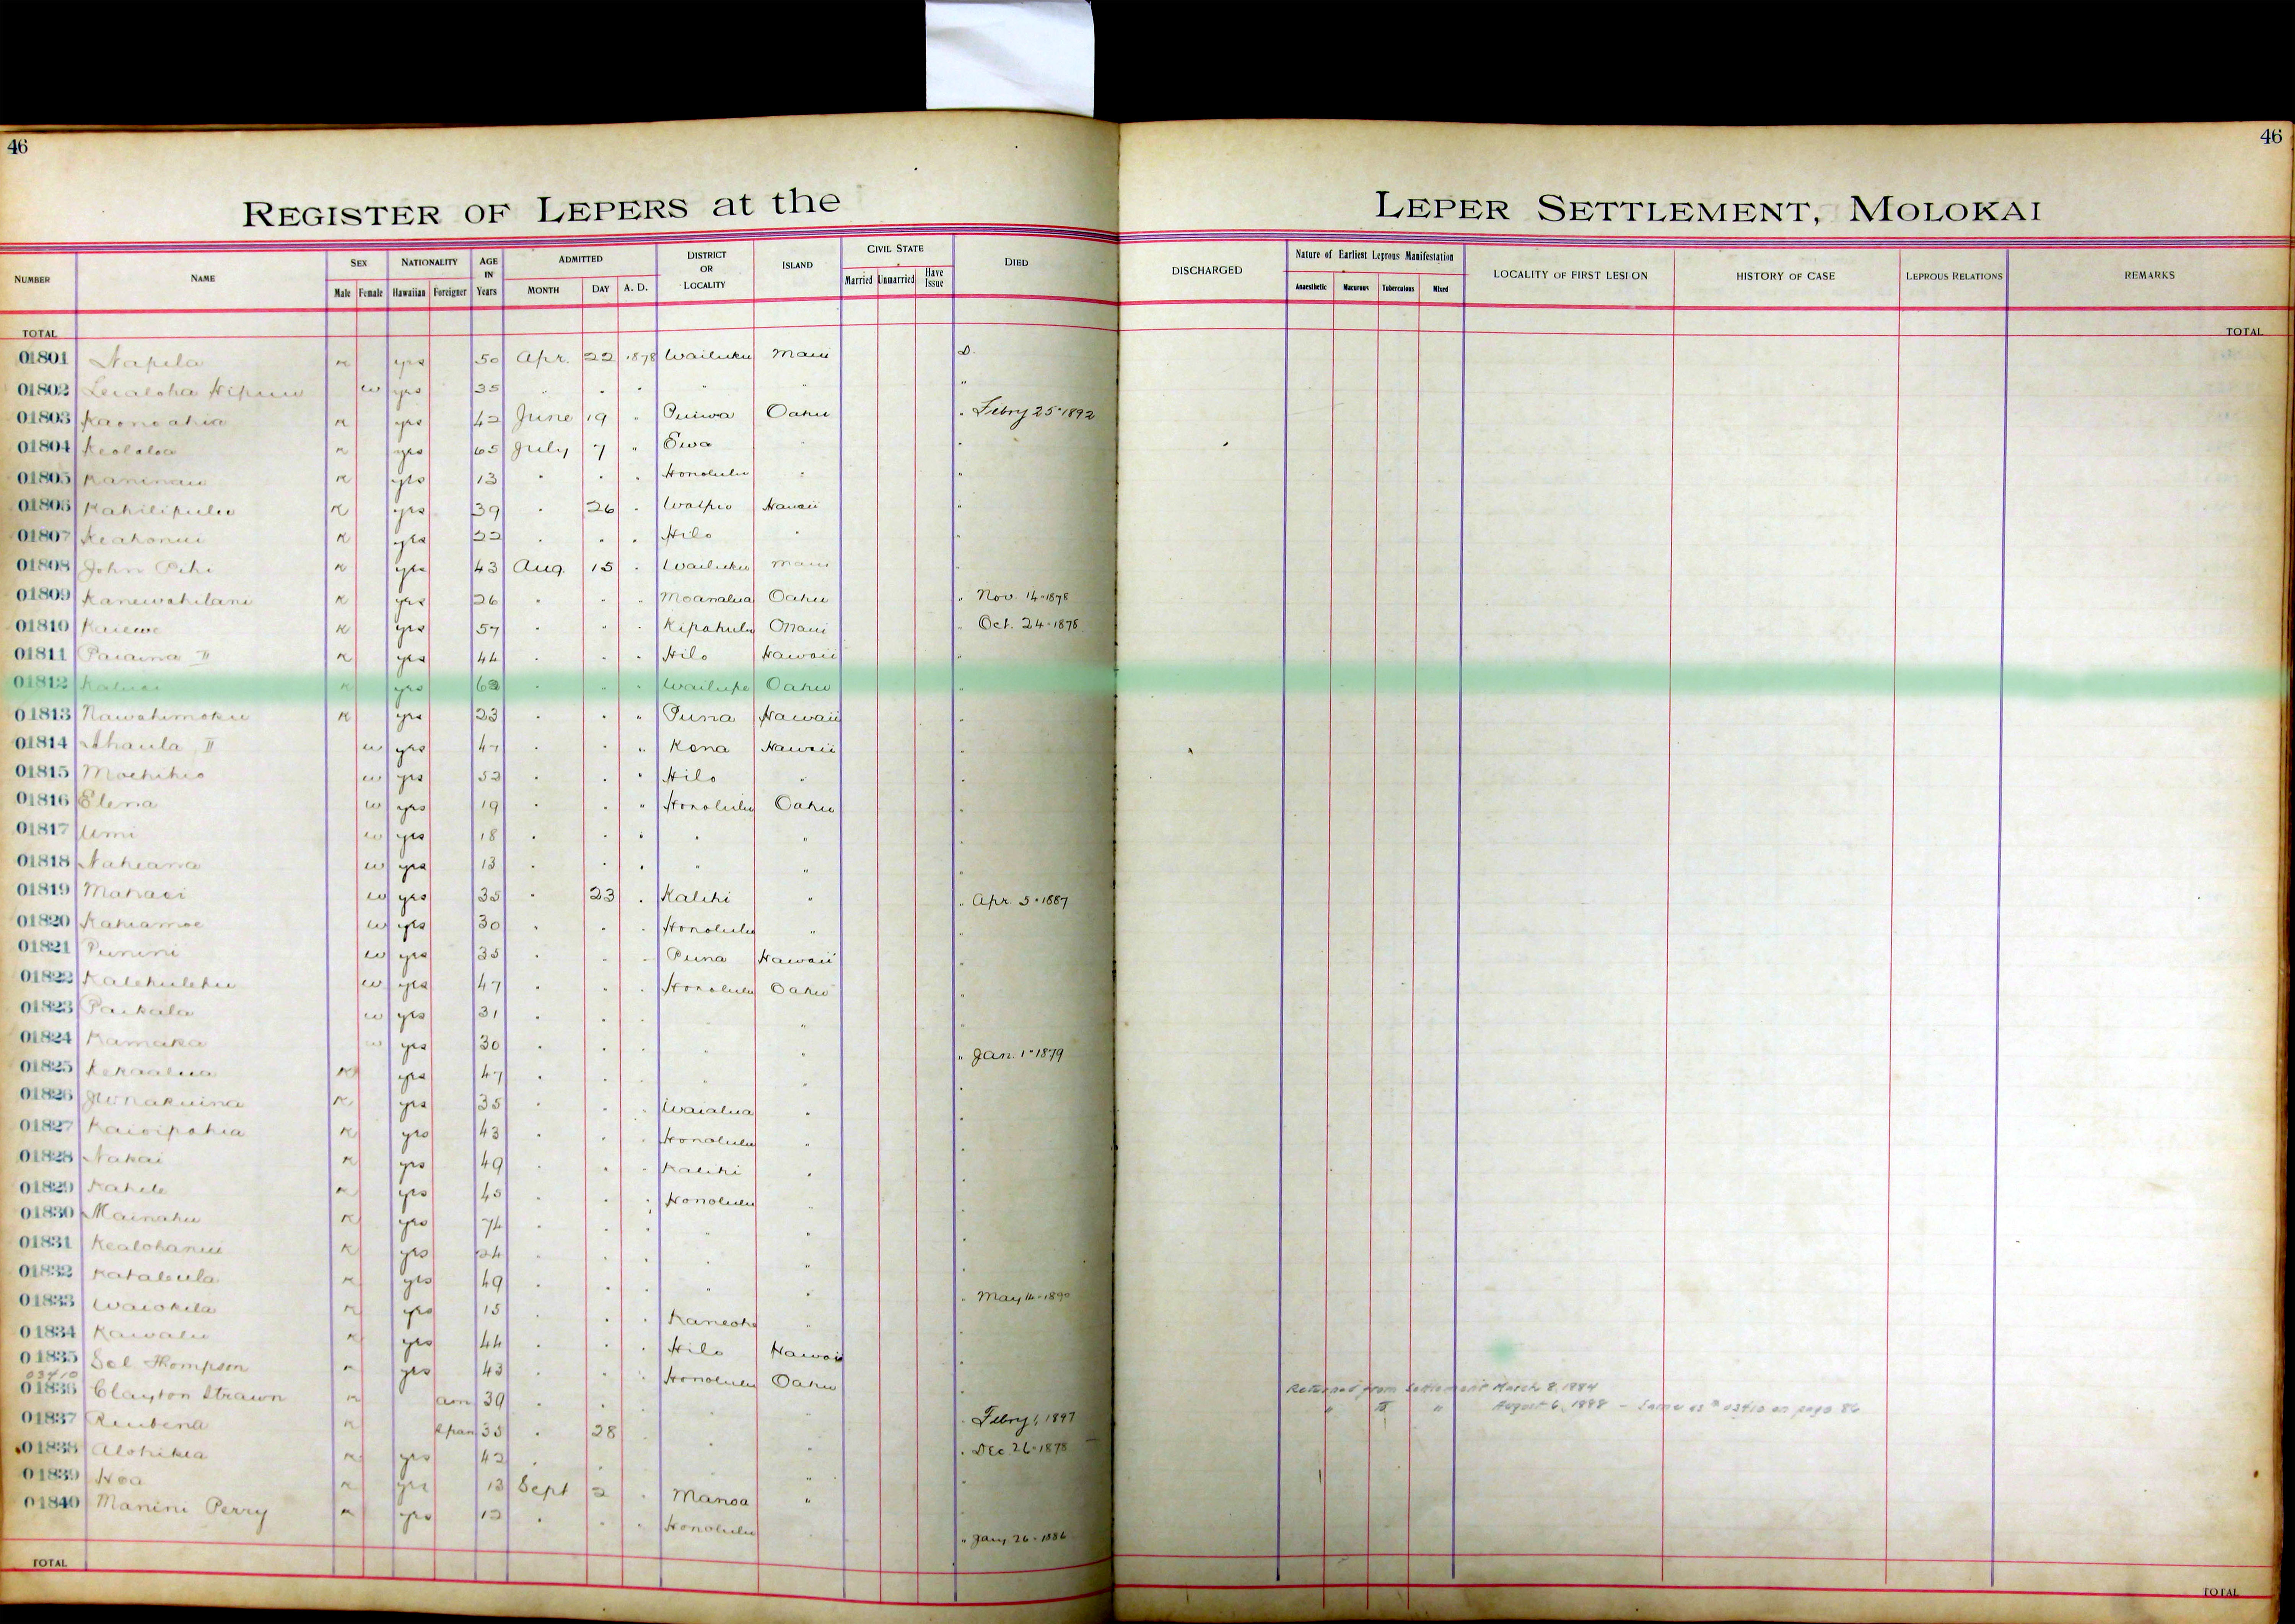 46
46
REGISTER OF LEPERS at the LEPER SETTLEMENT, MOLOKAI
NUMBER NAME SEX NATIONALITY AGE IN Years ADMITTED DISTRICT OR LOCALITY ISLAND CIVIL STATE DIED DISCHARGED Nature of Earliest Leprous Manifestation LOCALITY OF FIRST LESION HISTORY OF CASE LEPROUS RELATIONS REMARKS
Male Female Hawaiian Foreigner MONTH DAY A. D. Married Unmarried Have Issue Anaesthetic Macurous Tuberculous Mixed
TOTAL TOTAL
01801 Napela yes 50 Apr. 22 1878 Wailuku Maui D.
01802 Lealoha w yes 35 " " " " " "
01803 Kaonoahia yes 42 June 19 " Puiwa Oahu " Febry 25-1892
01804 Keololoa yes 65 July 7 " Ewa " "
01805 Kaninau yes 13 " " " Honolulu " "
01806 Kahilipulu yes 39 " 26 " Waipio Hawaii "
01807 Keahonui yes 22 " " " Hilo " "
01808 John yes 43 Aug. 15 " Wailuku Maui "
01809 Kanewahilani yes 26 " " " Moanalua Oahu " Nov. 14-1878
01810 Kaiewe yes 57 " " " Kipahulu Maui " Oct. 24-1878
01811 Paiaina II yes 44 " " " Hilo Hawaii "
01812 yes " " " Wailupe Oahu "
01813 Nawahimoku yes 23 " " " Puna Hawaii "
01814 Ahaula II w yes 47 " " " Kona Hawaii "
01815 w yes 52 " " " Hilo " "
01816 Elena w yes 19 " " " Honolulu Oahu "
01817 Umi w yes 18 " " " " " "
01818 Nakeana w yes 13 " " " " " "
01819 w yes 35 " 23 " Kalihi " " Apr. 5-1887
01820 Kahiamoe w yes 30 " " " Honolulu " "
01821 Punini w yes 35 " " " Puna Hawaii "
01822 Kalehulehu w yes 47 " " " Honolulu Oahu "
01823 Paikala w yes 31 " " " " " "
01824 Kamaka w yes 30 " " " " " " Jan. 1-1879
01825 Kekaalua yes 47 " " " " " "
01826 yes 35 " " " Waialua " "
01827 Kaioipohia yes 43 " " " Honolulu " "
01828 Nakai yes 49 " " " Kalihi " "
01829 Kahele yes 45 " " " Honolulu " "
01830 Mainahu yes 74 " " " " " "
01831 Kealohanui yes 24 " " " " " "
01832 yes 49 " " " " " " May 14-1890
01833 Waiokila yes 15 " " " Kaneohe " "
01834 Kawalu yes 44 " " " Hilo Hawaii "
01835 Sol Thompson yes 43 " " " Honolulu Oahu " Returned from Settlement March 8, 1884
03410
01836 Clayton Strawn am 39 " " " " " " Febry 1, 1897 " " " August 6, 1888 - Same as # 03410 on page 86
01837 Reubena Span 35 " 28 " " " " Dec 26-1878
01838 Alohikea yes 42 " " " " " "
01839 Hoa yes 13 Sept 2 " Manoa " "
01840 Manini Perry yes 12 " " " Honolulu " Jany 26-1886
TOTAL TOTAL